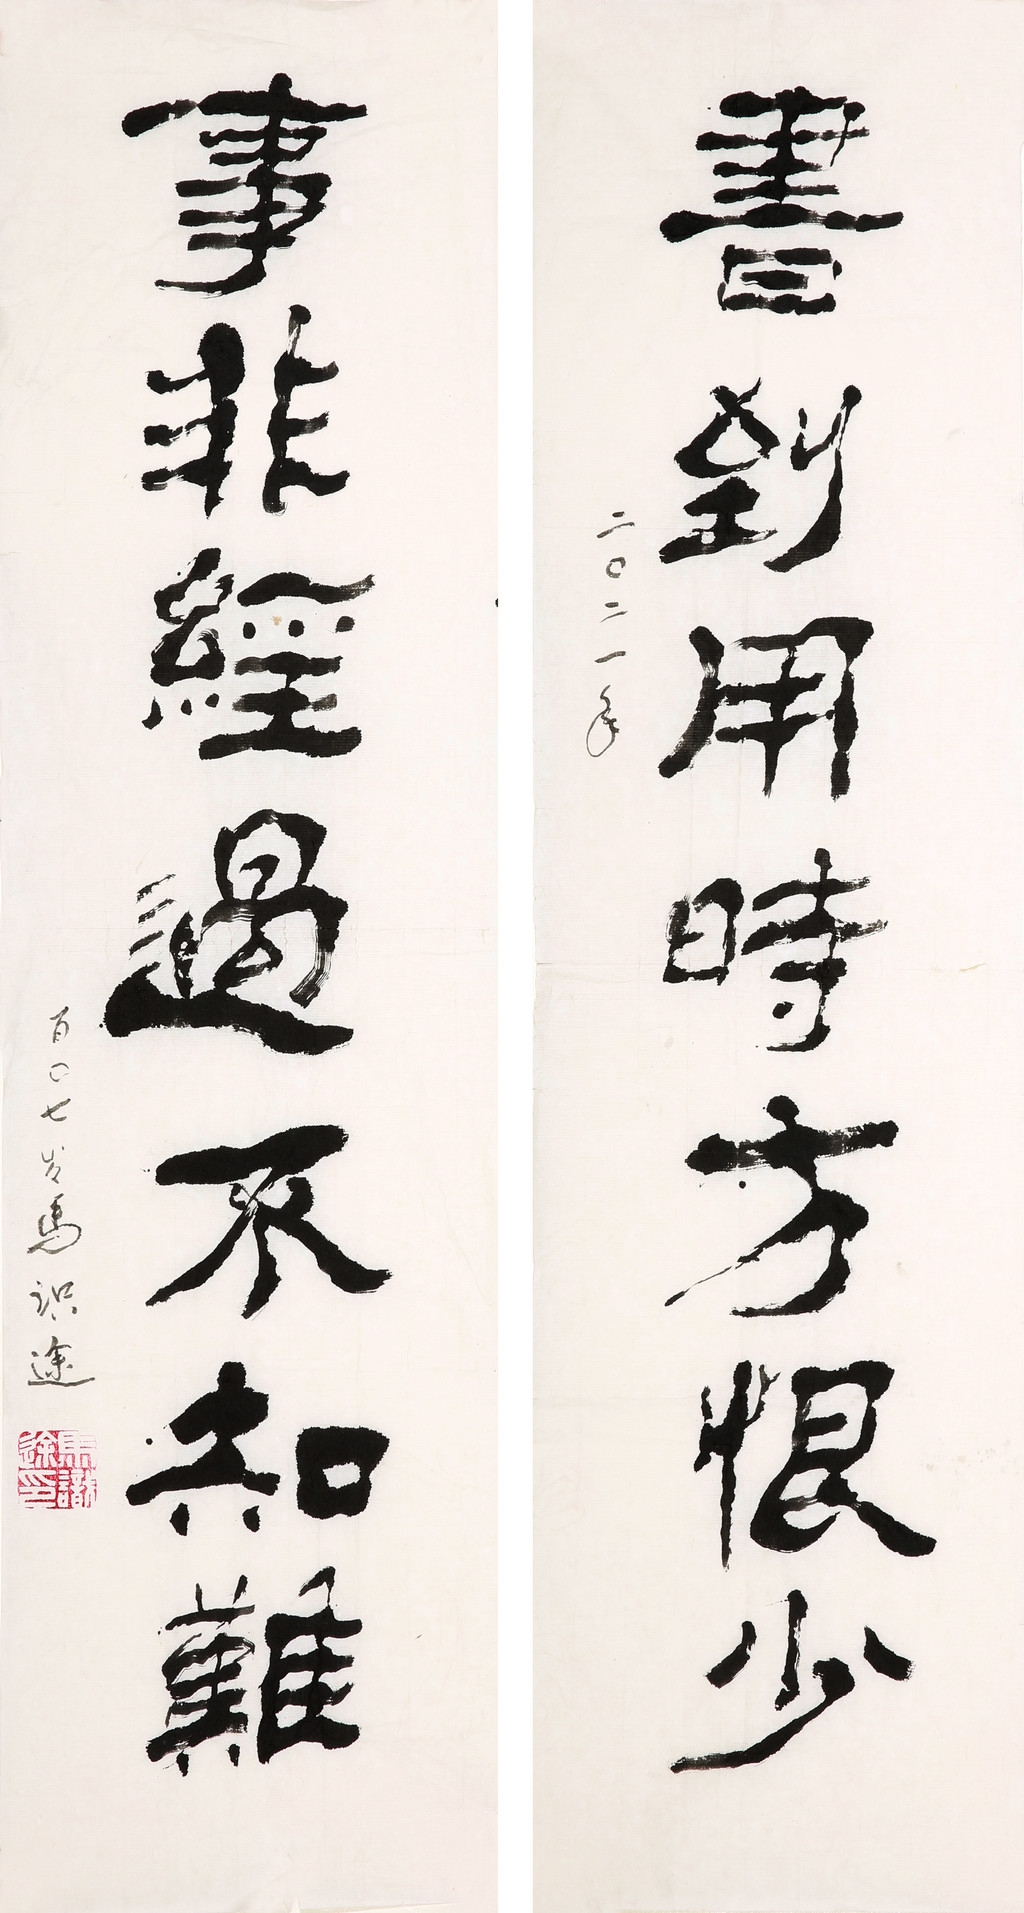 書到用時方恨少
二〇二一年
事非經過不知難
百〇七岁馬识途
馬識途印